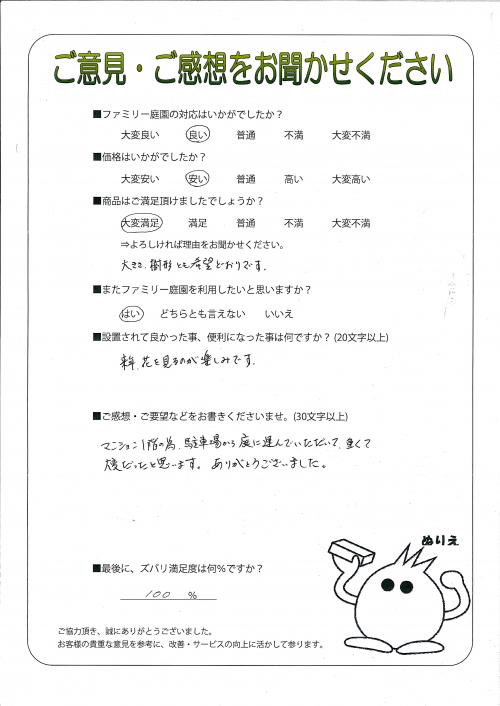 ご意見・ご感想をお聞かせください
■ファミリー庭園の対応はいかがでしたか？
大変良い 良い 普通 不満 大変不満
■価格はいかがでしたか？
大変安い 安い 普通 高い 大変高い
■商品はご満足頂けましたでしょうか？
大変満足 満足 普通 不満 大変不満
⇒よろしければ理由をお聞かせください。
大きさ、樹形とも希望どおりです。
■またファミリー庭園を利用したいと思いますか？
はい どちらとも言えない いいえ
■設置されて良かった事、便利になった事は何ですか？(20文字以上)
来年、花を見るのが楽しみです。
■ご感想・ご要望などをお書きくださいませ。(30文字以上)
マンション1階の為、駐車場から庭に運んでいただいて、重くて
大変だったと思います。ありがとうございました。
ぬりえ
■最後に、ズバリ満足度は何％ですか？
100 ％
ご協力頂き、誠にありがとうございました。
お客様の貴重な意見を参考に、改善・サービスの向上に活かして参ります。